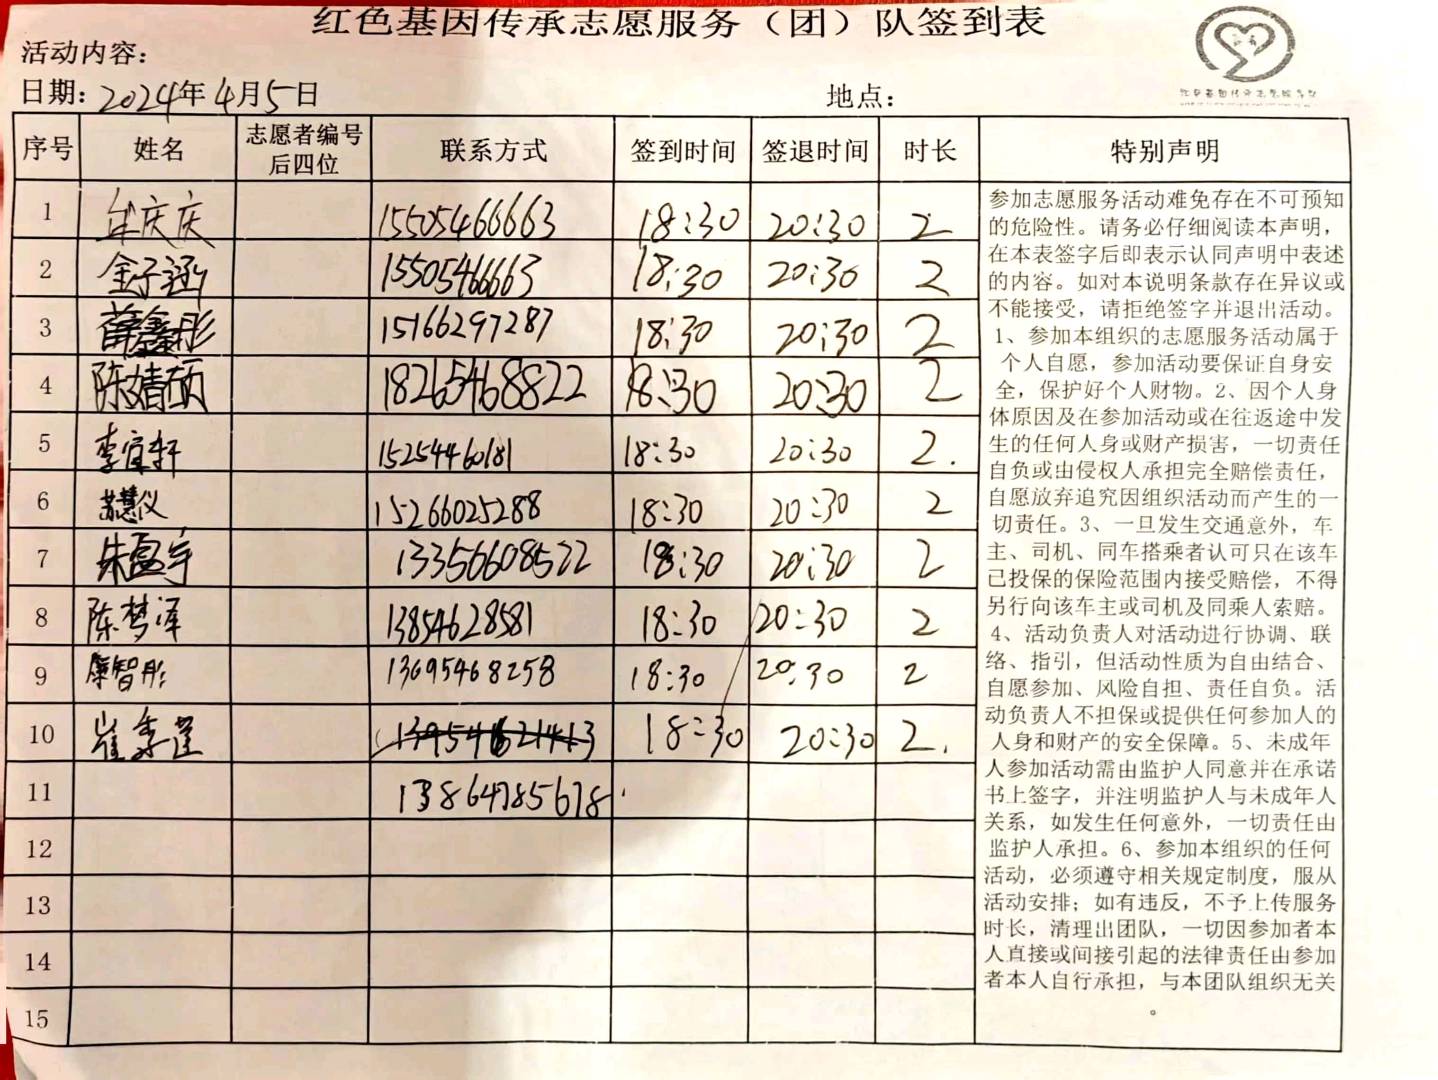 红色基因传承志愿服务（团）队签到表
活动内容：
日期：2024年4月5日 地点：
序号 姓名 志愿者编号后四位 联系方式 签到时间 签退时间 时长 特别声明
1 牟庆庆 15505466663 18:30 20:30 2
2 金子涵 15505466663 18:30 20:30 2
3 薛鑫彤 15166297287 18:30 20:30 2
4 陈婧硕 18265468822 18:30 20:30 2
5 李宜轩 15254460181 18:30 20:30 2.
6 苏慧仪 15266025288 18:30 20:30 2
7 朱盈宇 13356608522 18:30 20:30 2
8 陈梦泽 13854628581 18:30 20:30 2
9 廖智彤 13695468258 18:30 20:30 2
10 崔 18:30 20:30 2.
11 13864785678
12
13
14
15
参加志愿服务活动难免存在不可预知
的危险性。请务必仔细阅读本声明，
在本表签字后即表示认同声明中表述
的内容。如对本说明条款存在异议或
不能接受，请拒绝签字并退出活动。
1、参加本组织的志愿服务活动属于
个人自愿，参加活动要保证自身安
全，保护好个人财物。2、因个人身
体原因及在参加活动或在往返途中发
生的任何人身或财产损害，一切责任
自负或由侵权人承担完全赔偿责任，
自愿放弃追究因组织活动而产生的一
切责任。3、一旦发生交通意外，车
主、司机、同车搭乘者认可只在该车
已投保的保险范围内接受赔偿，不得
另行向该车主或司机及同乘人索赔。
4、活动负责人对活动进行协调、联
络、指引，但活动性质为自由结合、
自愿参加、风险自担、责任自负。活
动负责人不担保或提供任何参加人的
人身和财产的安全保障。5、未成年
人参加活动需由监护人同意并在承诺
书上签字，并注明监护人与未成年人
关系，如发生任何意外，一切责任由
监护人承担。6、参加本组织的任何
活动，必须遵守相关规定制度，服从
活动安排；如有违反，不予上传服务
时长，清理出团队，一切因参加者本
人直接或间接引起的法律责任由参加
者本人自行承担，与本团队组织无关
。